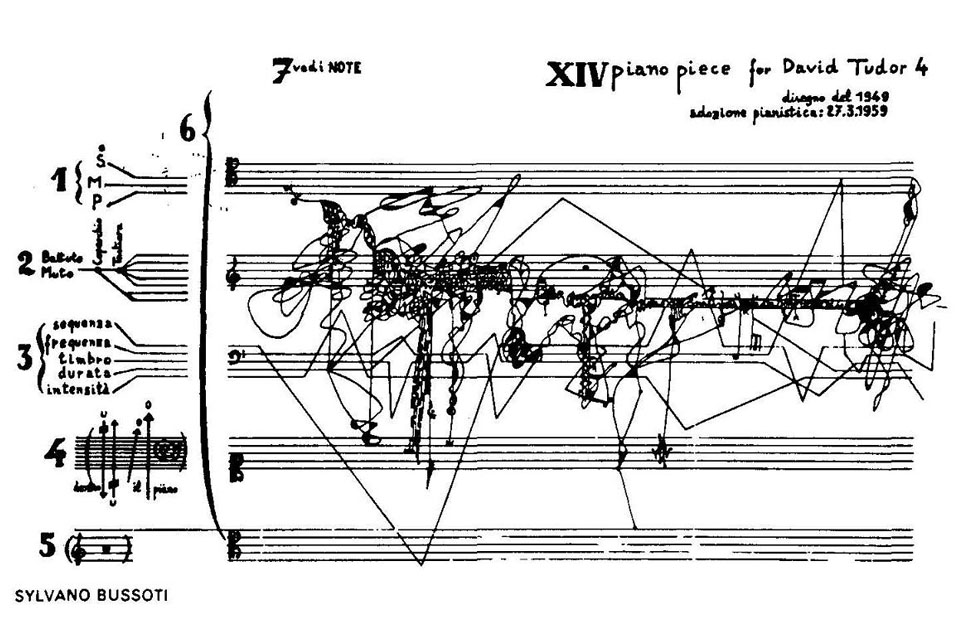 7 vedi NOTE
XIV piano piece for David Tudor 4
disegno del 1949
adozione pianistica: 27.3.1959
6
1 { S
M
P
2 Battuto
Muto
3 { sequenza
frequenza
timbro
durata
intensità
4
il piano
5
SYLVANO BUSSOTI